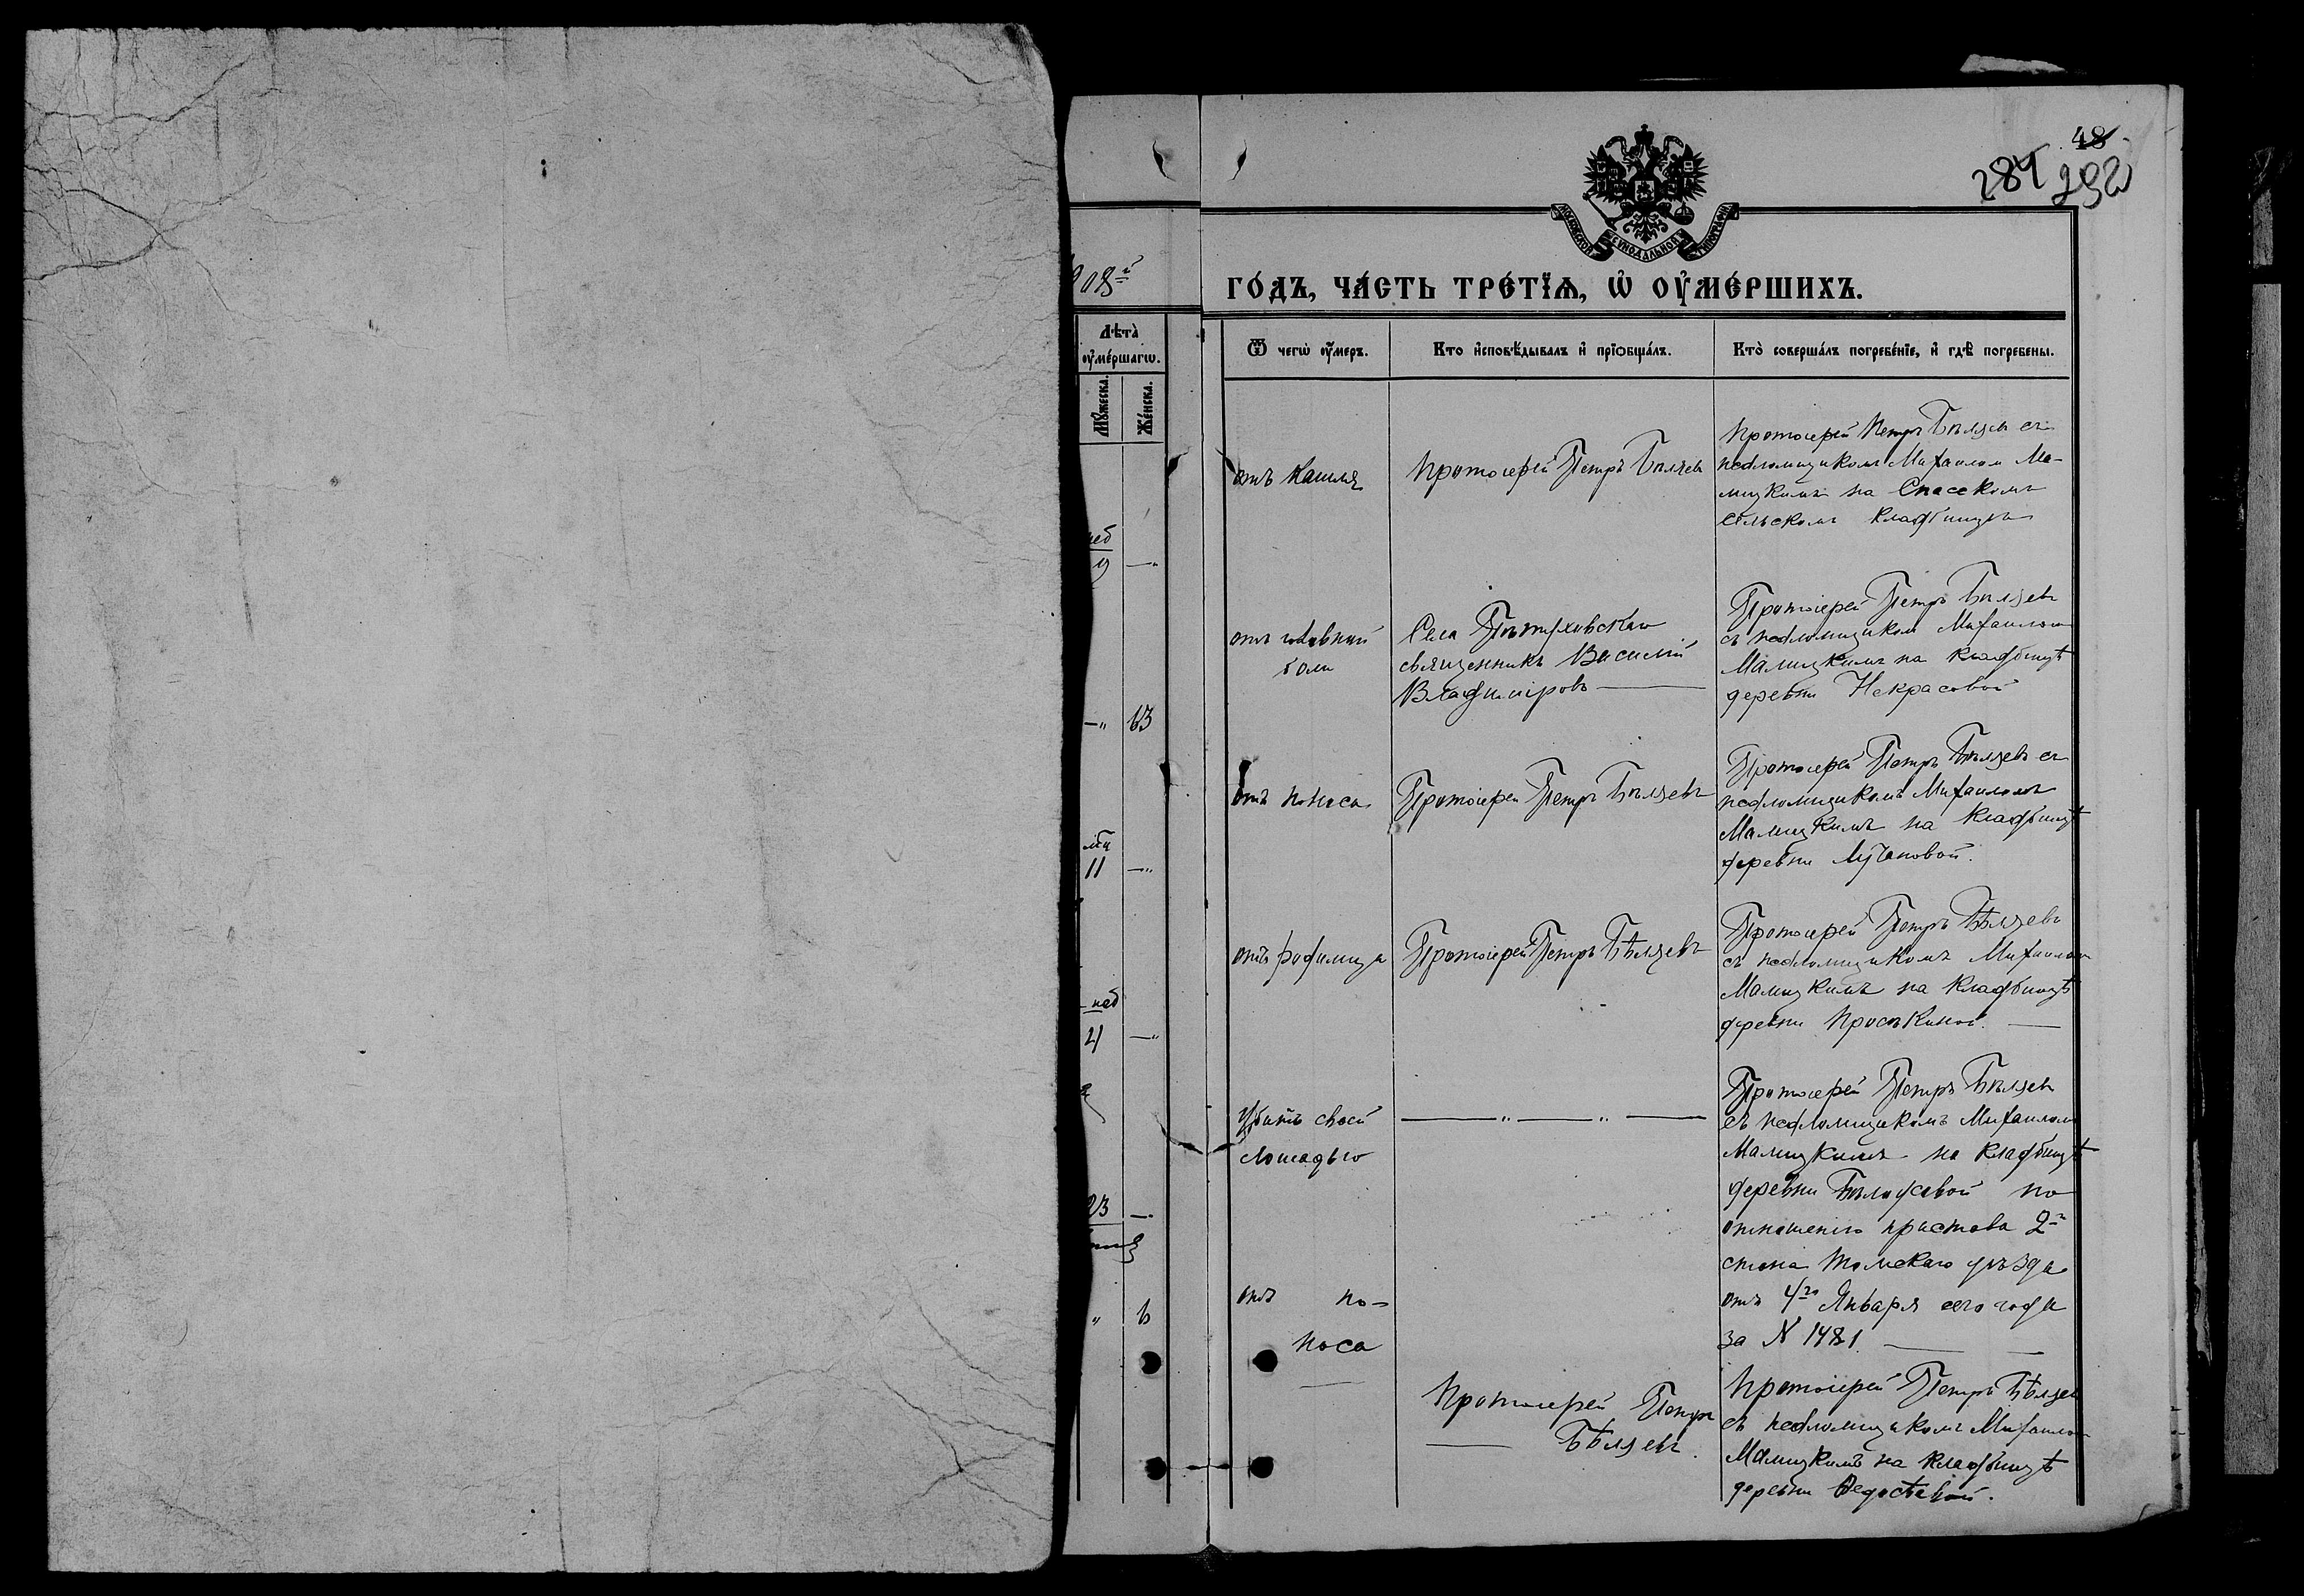 48
284 292
МОСКОВСКОЙ СУНОДАЛЬНОЙ ТИПОГРАФІИ
908й
ГО́ДЪ, ЧА́СТЬ ТРЕ́ТЇѦ, Ѡ҆ ОУ҆МЕ́РШИХЪ.
Лѣта̀
оу҆ме́ршагѡ.
Мꙋ́жеска.
Же́нска.
Ѿ чегѡ̀ оу҆́меръ.
Кто̀ и҆сповѣ́дывалъ и҆ прїѡбща́лъ.
Кто̀ соверша́лъ погребе́нїе, и҆ гдѣ̀ погребены̀.
отъ кашля
Протоіерей Петръ Бѣляев
Протоіерей Петръ Бѣляев съ
псаломщикомъ Михаилом Ма-
мицкимъ на Спасскомъ
сельскомъ кладбищѣ
нед
9 —"
отъ головной
боли
Села Пѣтуховскаго
священникъ Василій
Владиміровъ
Протоіерей Петръ Бѣляевъ
съ псаломщиком Михаилом
Мамицкимъ на кладбищѣ
деревни Некрасовой
—" 63
отъ поноса
Протоіерей Петръ Бѣляевъ
Протоіерей Петръ Бѣляевъ съ
псаломщикомъ Михаиломъ
Мамицкимъ на кладбищѣ
деревни Лучановой.
11 —"
отъ родимца
Протоіерей Петръ Бѣляевъ
Протоіерей Петръ Бѣляевъ
съ псаломщикомъ Михаилом
Мамицкимъ на кладбищѣ
деревни Проскиной.
нед
4 —"
убитъ своей
лошадью
— " — " —
Протоіерей Петръ Бѣляевъ
съ псаломщикомъ Михаилом
Мамицкимъ на кладбищѣ
деревни Бѣлоусовой по
отношенію пристава 2го
стана Томскаго уѣзда
отъ 4го Января сего года
за N 1481
23 —"
" 6
отъ по-
носа
Протоіерей Петръ
Бѣляевъ
Протоіерей Петръ Бѣляев
съ псаломщикомъ Михаилом
Мамицкимъ на кладбищѣ
деревни Ѳедосѣевой.